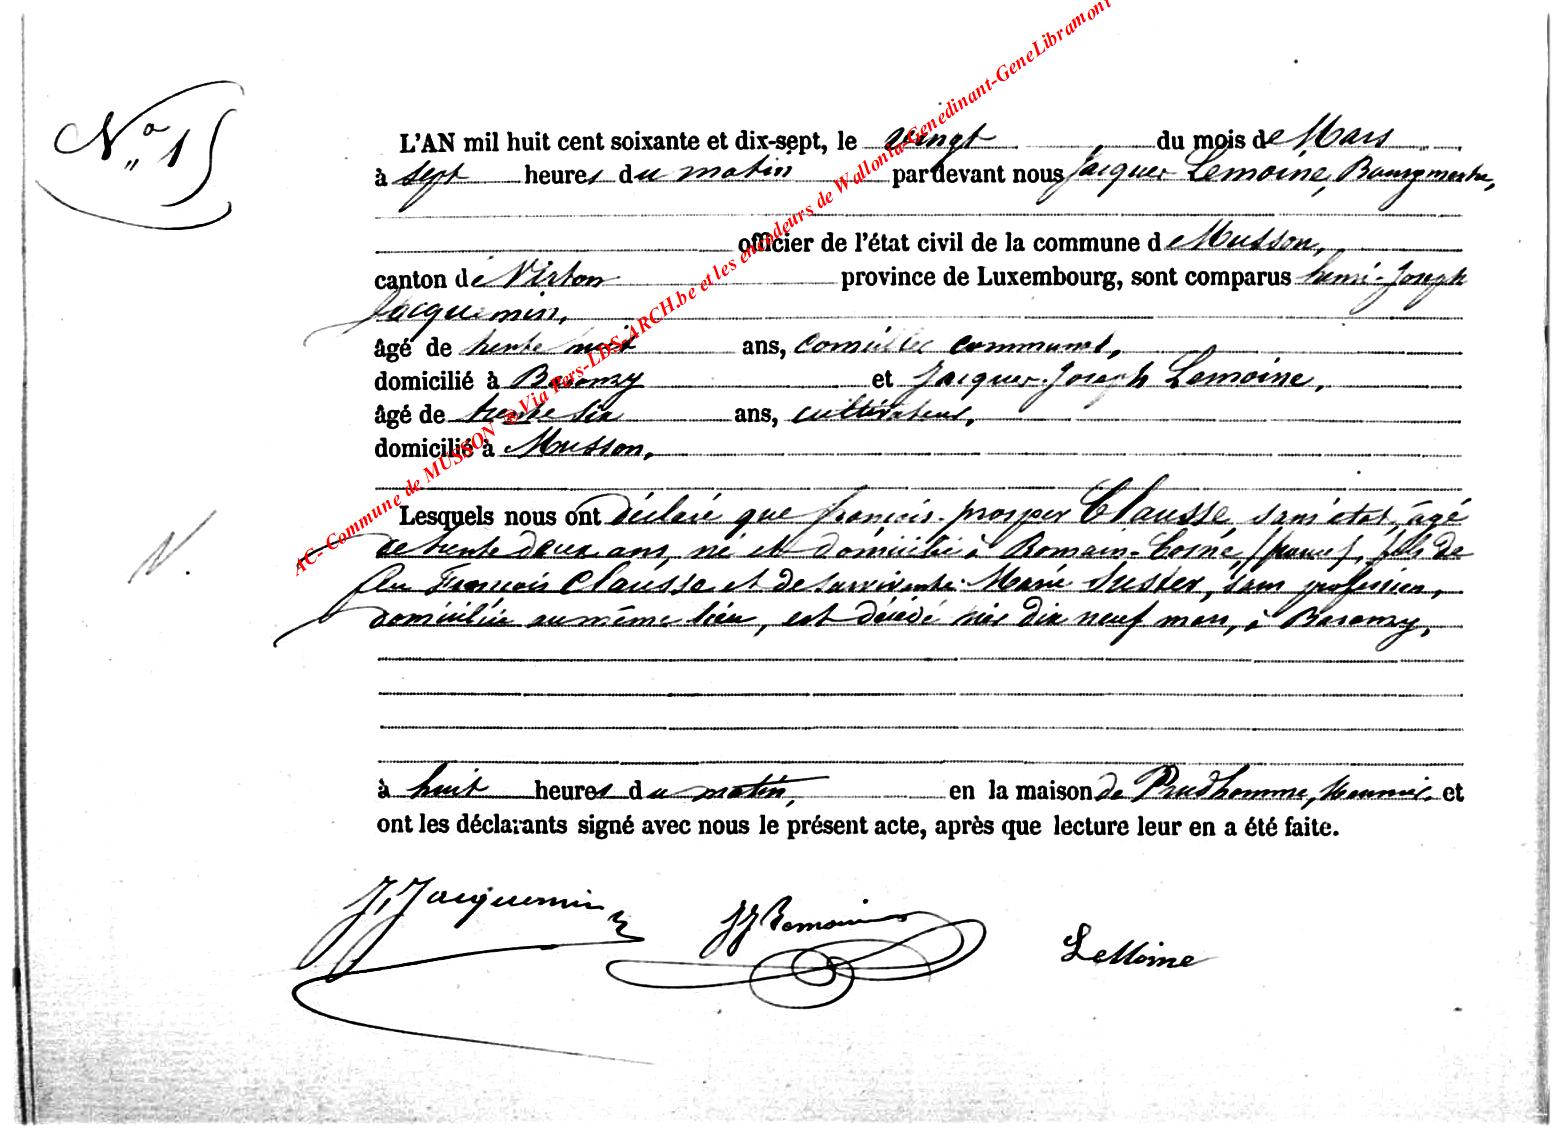 N° 15
L'AN mil huit cent soixante et dix-sept, le vingt du mois de Mars
à sept heures du matin par devant nous Jacques Lemoine, Bourgmestre,
officier de l'état civil de la commune de Musson,
canton de Virton province de Luxembourg, sont comparus henri-Joseph
Jacquemin,
âgé de trente ans, conseiller communal,
domicilié à Baranzy et Jacques-Joseph Lemoine,
âgé de trente six ans, cultivateur,
domicilié à Musson,
Lesquels nous ont déclaré que françois-prosper Clausse, sans état, âgé
de trente deux ans, né et domicilié à Romain- (france), fils de
feu François Clausse et de survivante Marie Suster, sans profession,
domiciliée au même lieu, est décédé hier dix neuf mars, à Baranzy,
à huit heures du matin, en la maison de Prudhomme, Meunier, et
ont les déclarants signé avec nous le présent acte, après que lecture leur en a été faite.
N.
J, Jacquemin
JJ Lemoine
LeMoine
AC- Commune de MUSSON @Via Pers-LDS-ARCH.be et les encodeurs de Wallonia-Genedinant-GeneLibramont